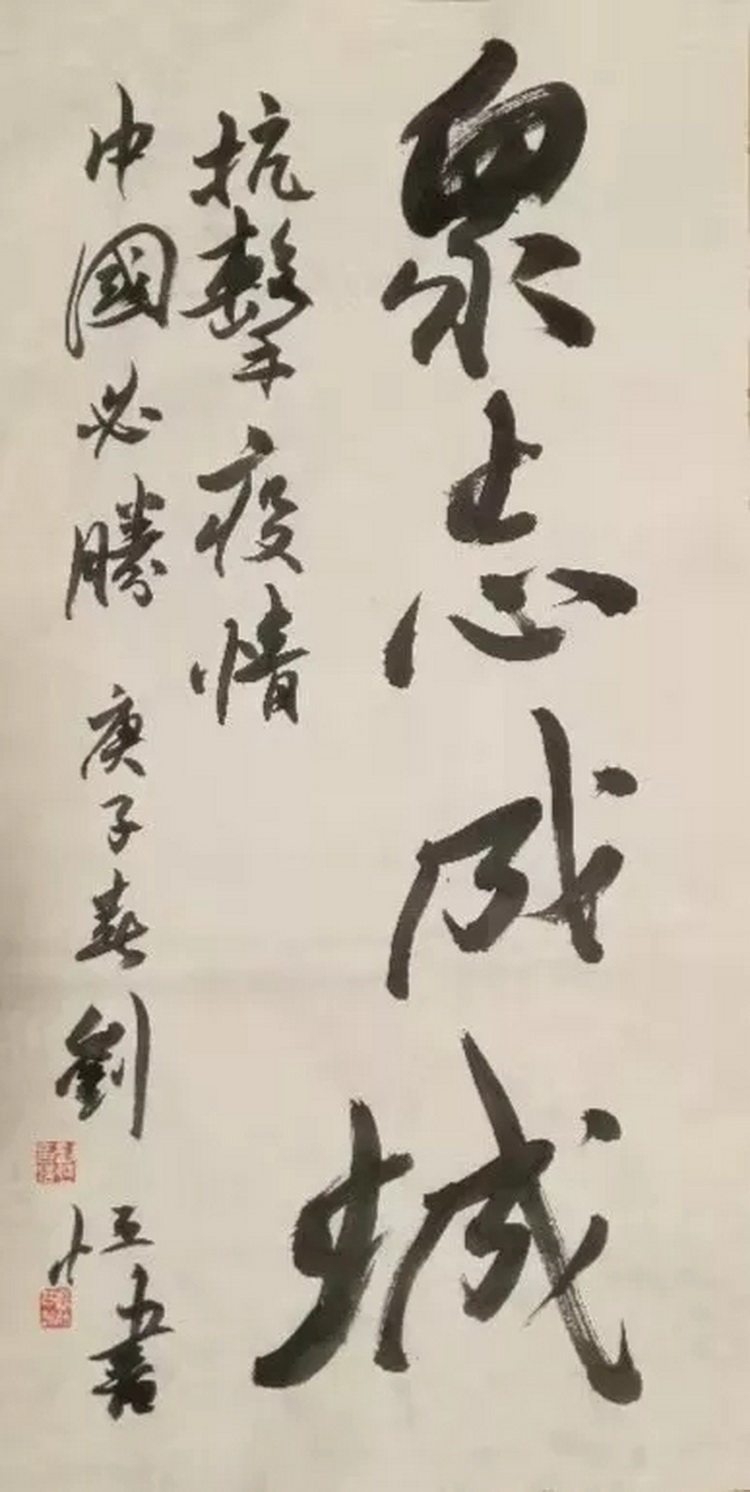 眾志成城
抗擊疫情
中國必勝 庚子春劉恒書